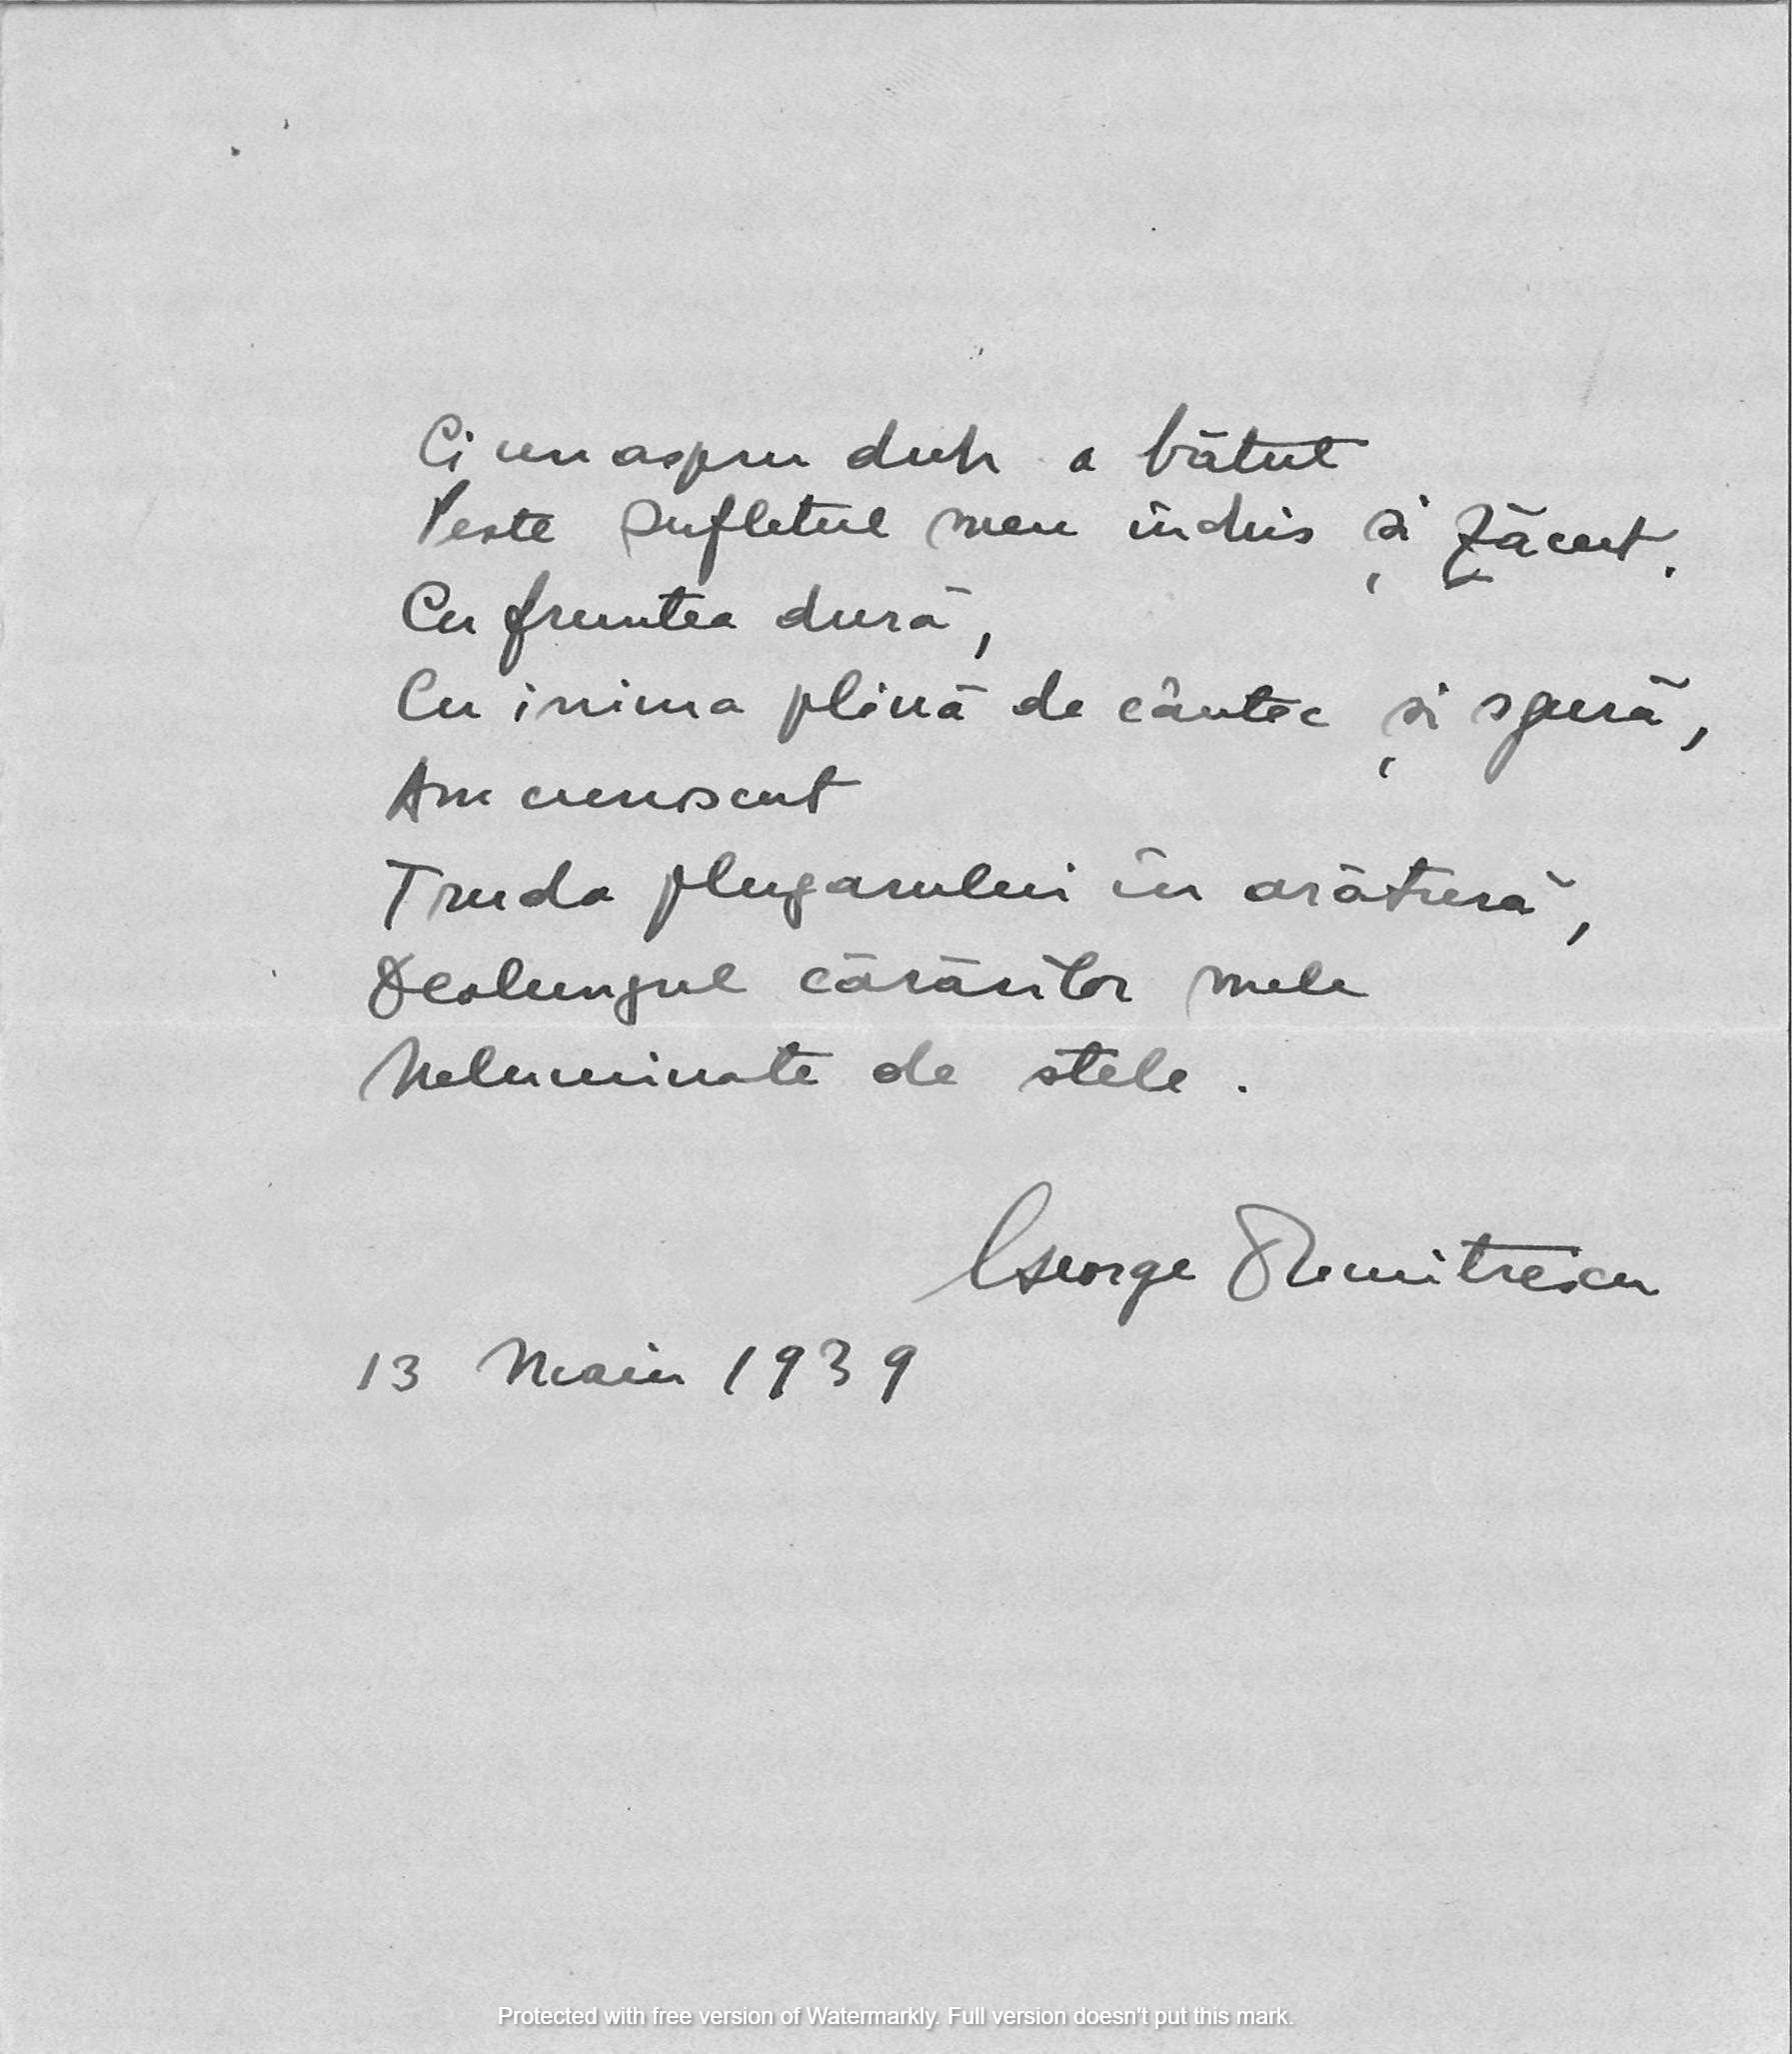 Ci un aspru duh a bătut
Peste sufletul meu închis și zăcut.
Cu fruntea dură,
Cu inima plină de cântec și sgură,
Am cunoscut
Truda plugarului în arătură,
Dealungul cărărilor mele
Neluminate de stele.
George Dumitrescu
13 Maiu 1939
Protected with free version of Watermarkly. Full version doesn't put this mark.